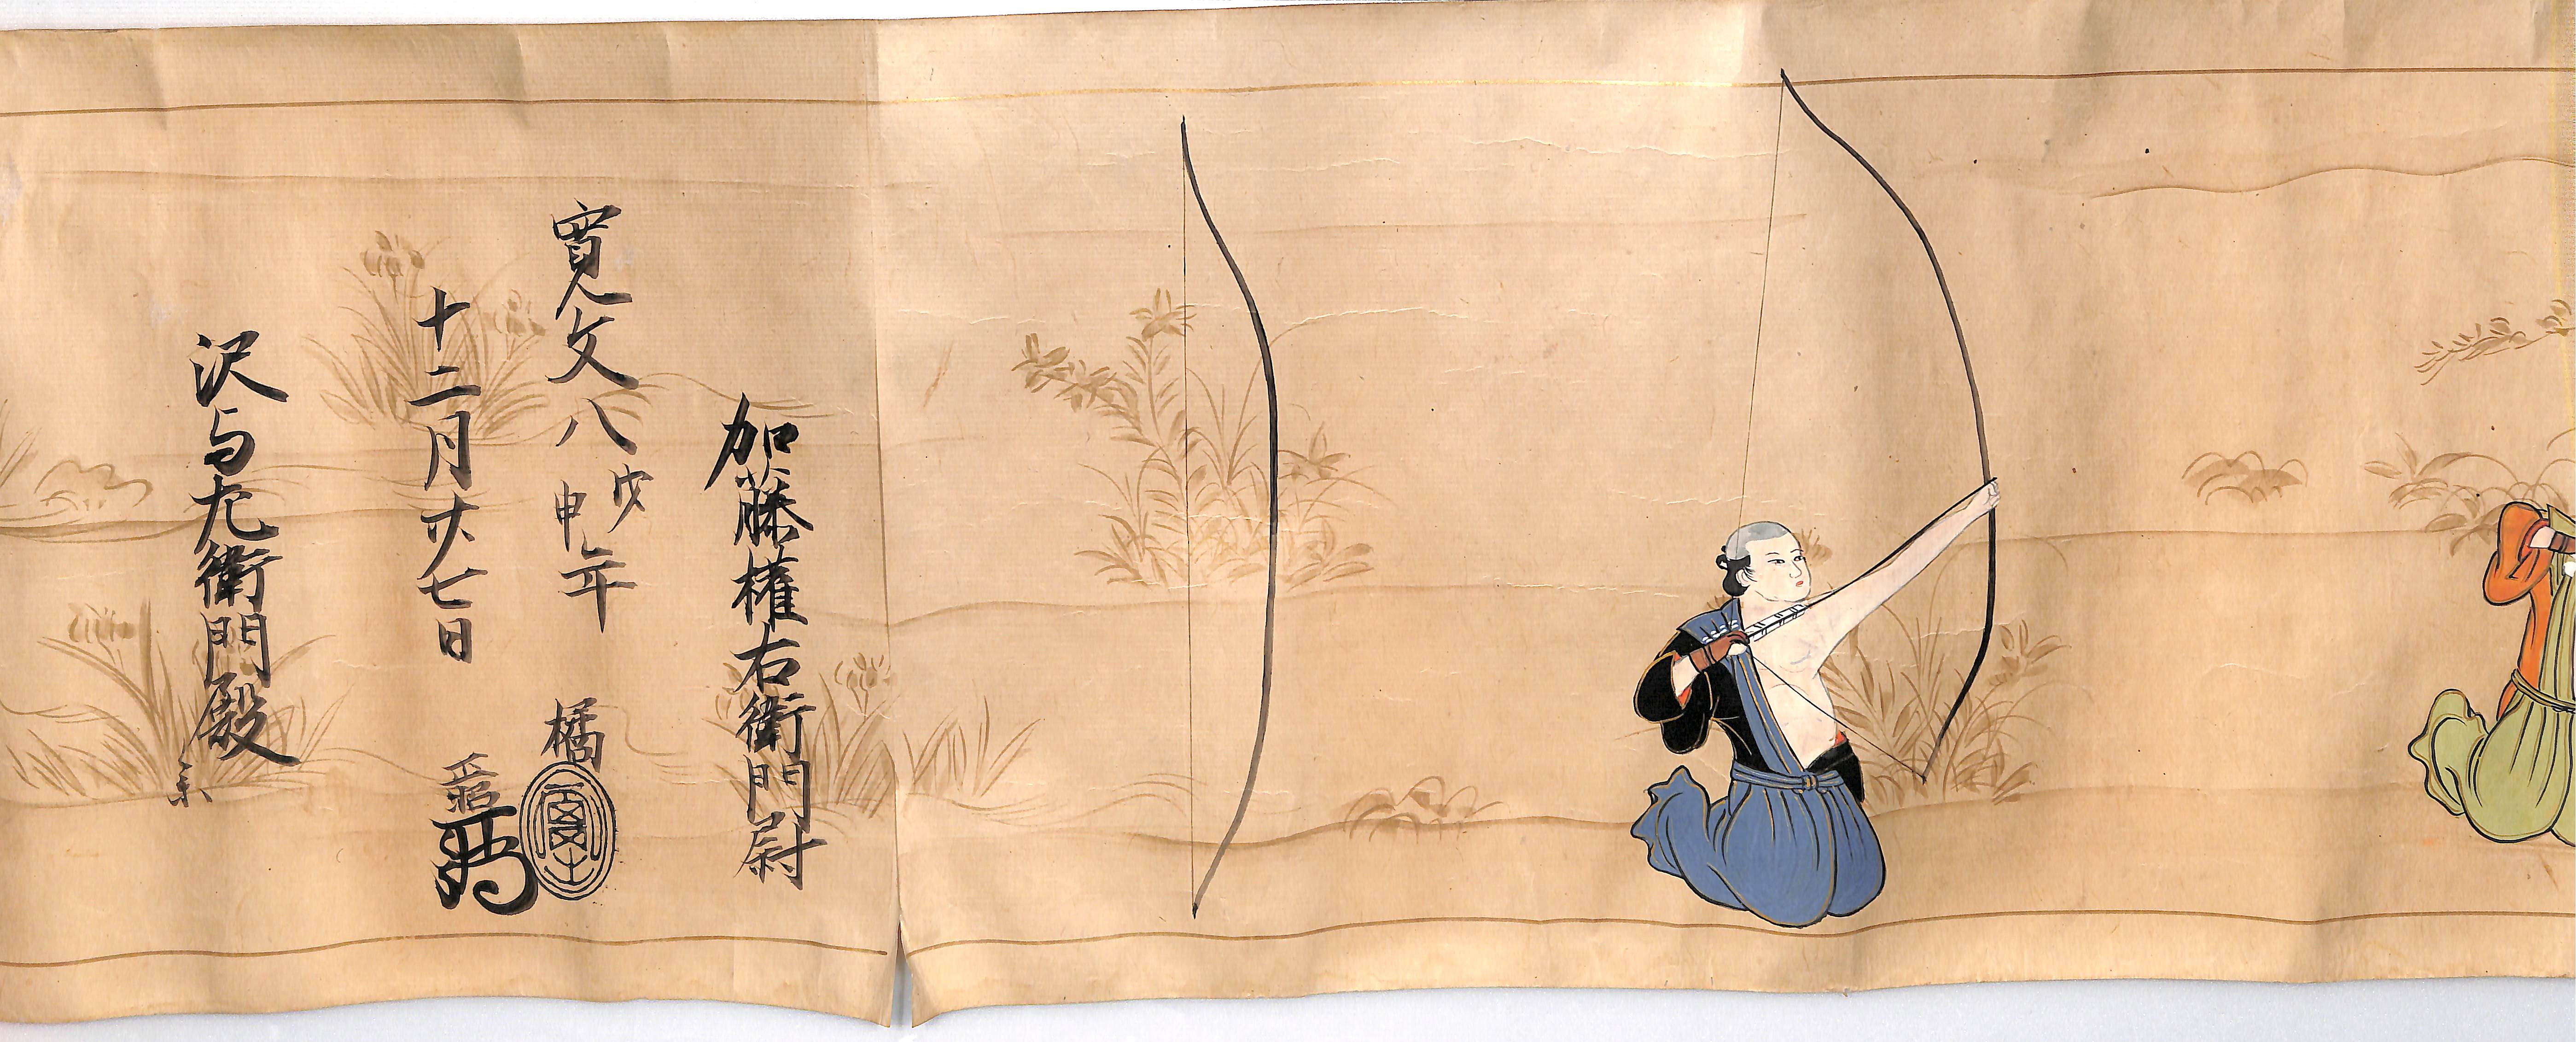 加藤権右衛門尉
寛文八戊申年 橘
十二月廿七日
沢与左衛門殿